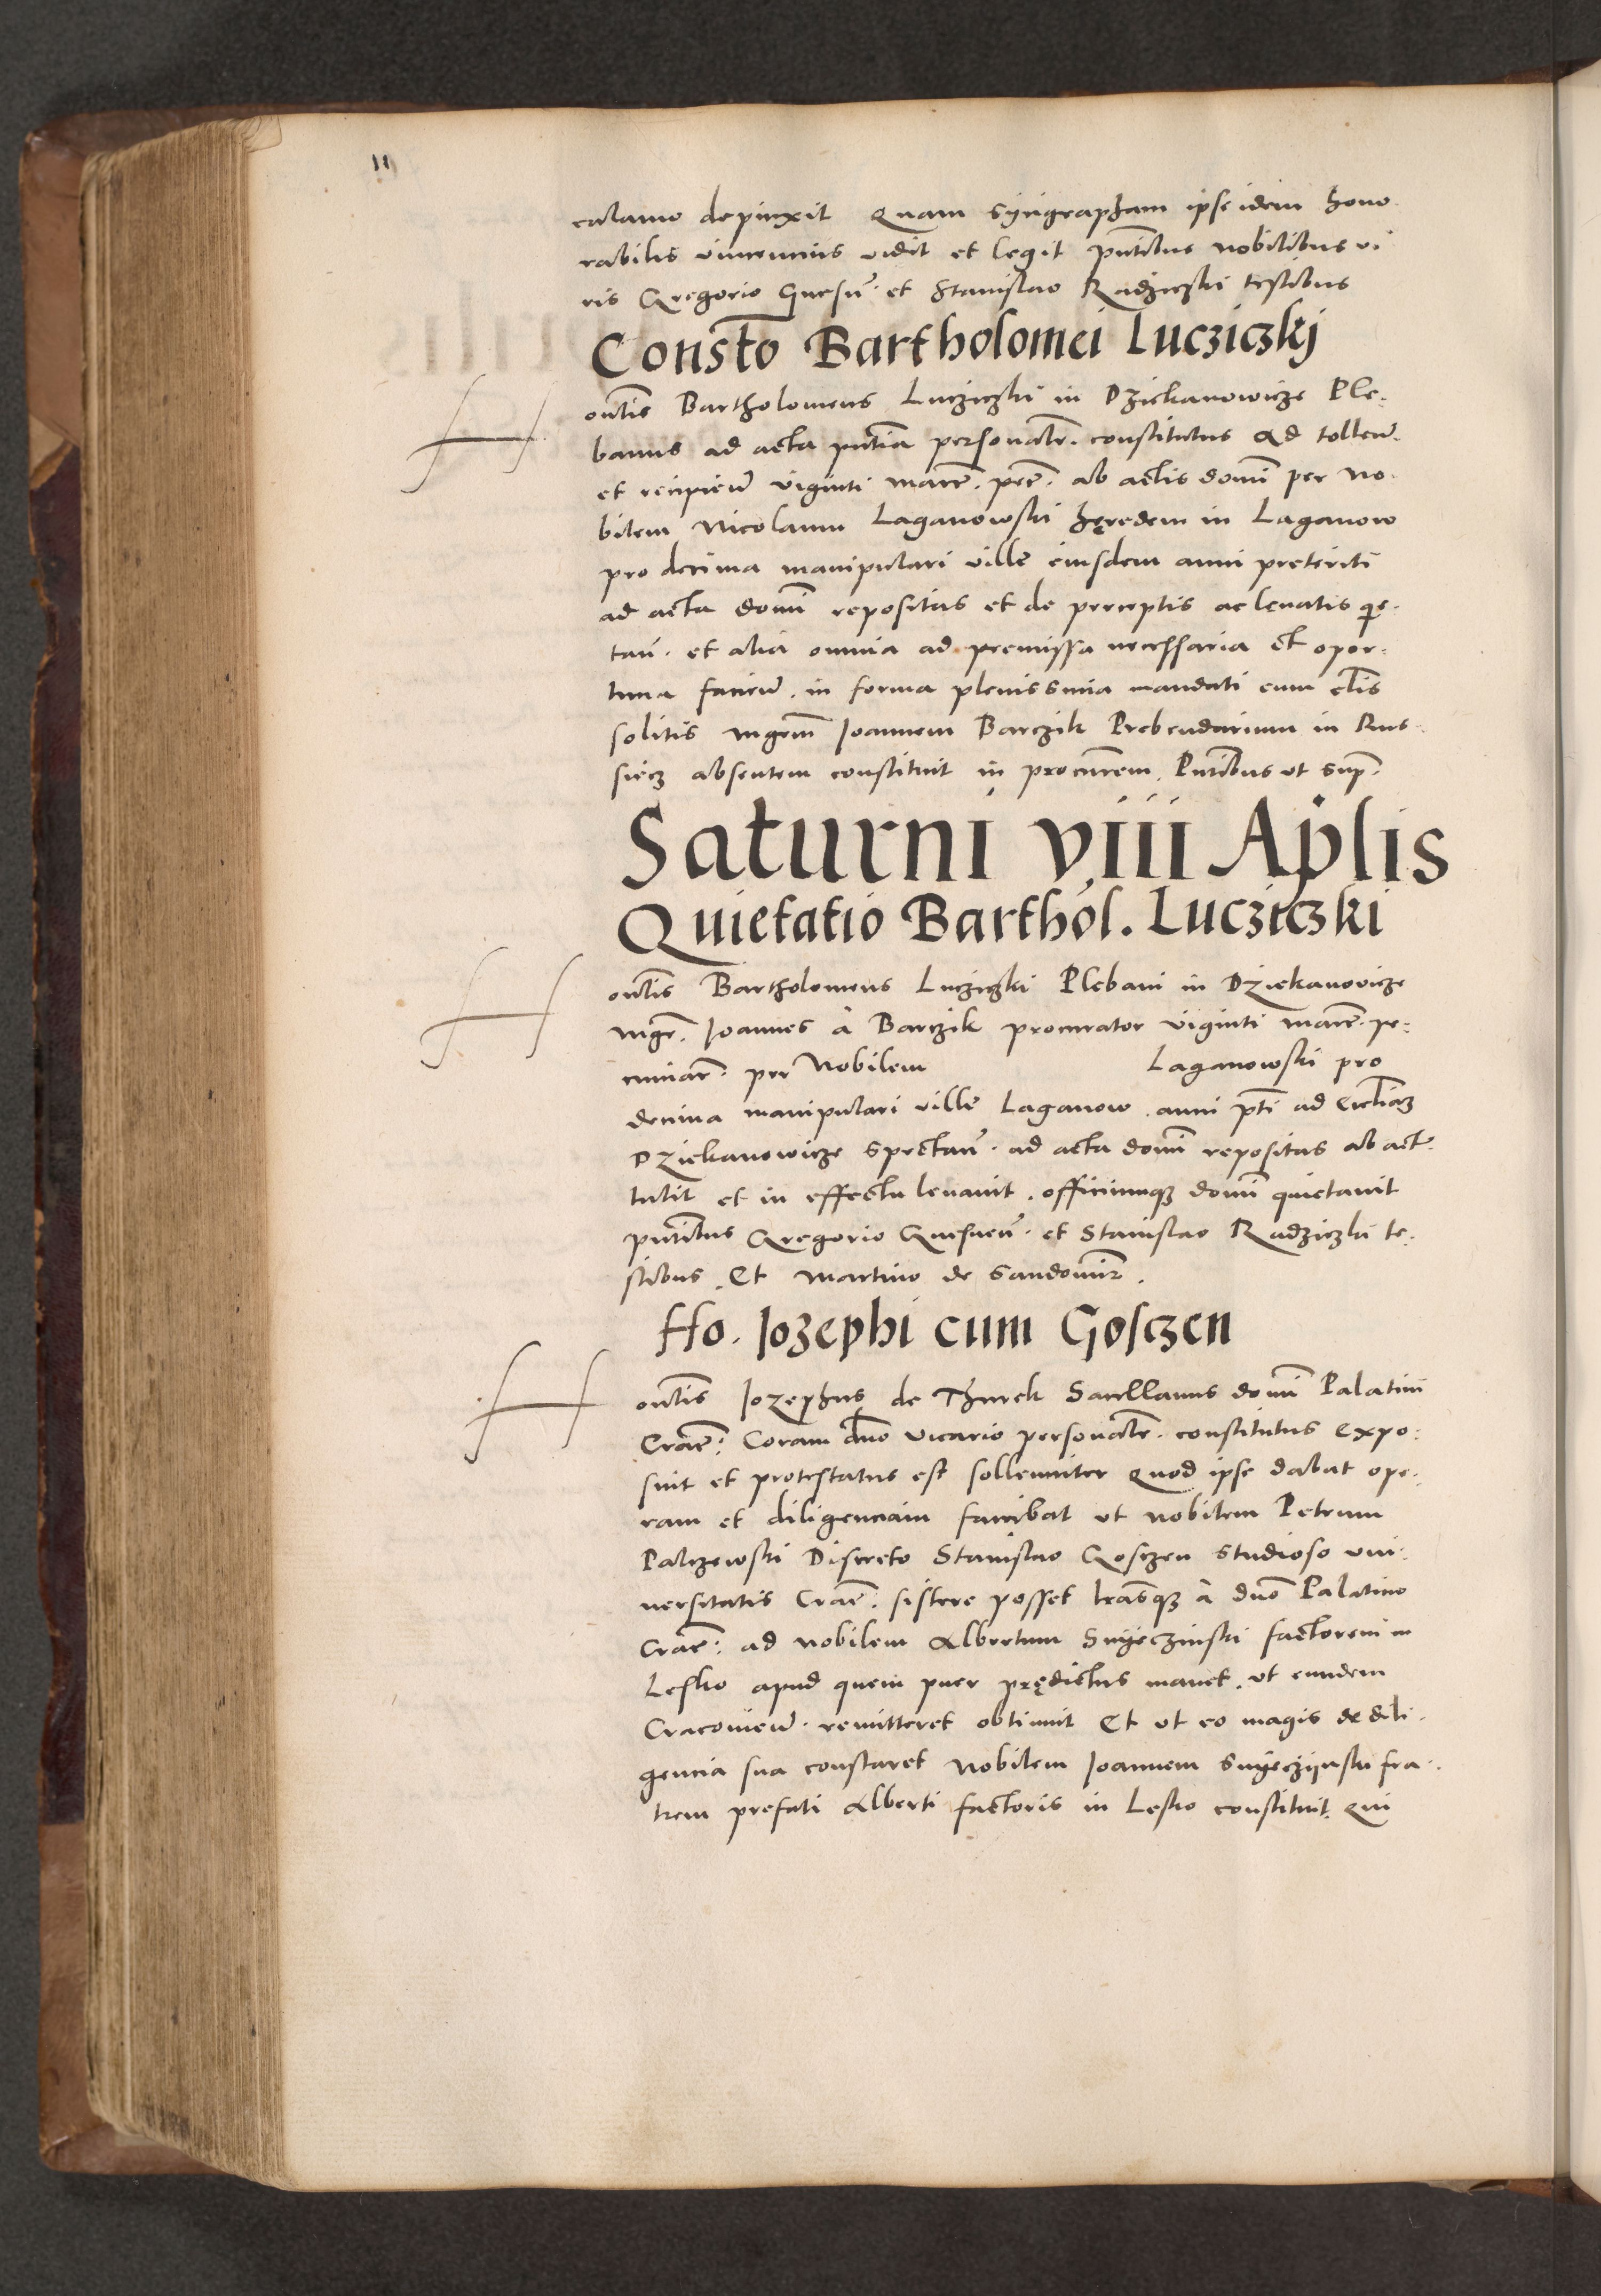 11
calamo depinxit Quam syngrapham ipse idem hono
rabilis vincencius vidit et legit pntibus nobilibus vi
ris Gregorio et Stanislao Radziczski testibus
Consto Bartholomei Lucziczkj
Hontis Bartholomeus Lucziczki in Dziekanowicze Ple:
banus ad acta pntia personalr. constitutus Ad tollen.
et recipien viginti marc. pec. ab actis domi per No.
bilem Nicolaum Laganowski hęredem in Laganow
pro decima manipulari ville eiusdem anni preteriti
ad acta domi repositas et de perceptis ac levatis qie.
tan. et alia omnia ad premissa necessaria et opor:
tuna facien. in forma plenissima mandati cum clis
solitis mgrm Joannem Barczik Prebendarium in Rus.
siecz absentem constituit in procurem. Pntibus ut sup.
Saturni viii Aplis
Quietatio Barthol. Lucziczki
Hontis Bartholomeus Lucziczki Plebani in Dziekanovicze
mgr. Joannes a Barczik procurator viginti marc. pe:
cuniar. per Nobilem Laganowski pro
decima manipulari ville Laganow anni pti ad Eccliaz
Dziekanowicze spectan. ad acta domi repositas ab act.
tulit et in effectu levavit. officiumqz domi quietavit
pntibus Gregorio et Stanislao Radziczki te.
stibus. Et Martino de Sandomir.
Ho. Jozephi cum Gosczen
Hontis Jozephus de Thurek Sacellanus domi Palatini
Crac. Coram dno vicario personalr. constitutus Expo:
suit et protestatus est sollemniter Quod ipse dabat ope.
ram et diligenciam faciebat ut nobilem Petrum
Palczewski Discreto Stanislao Gosczen studioso uni.
versitatis Crac. sistere posset lrasqz a dno Palatino
Crac. ad nobilem Albertum Smyeczinski factorem in
Lesko apud quem puer prędictus manet. ut eundem
Cracovien. remitteret obtinuit Et ut eo magis de dili.
gencia sua constaret nobilem Joannem Smyeczijnski fra.
trem prefati Alberti factoris in Lesko constituit Qui